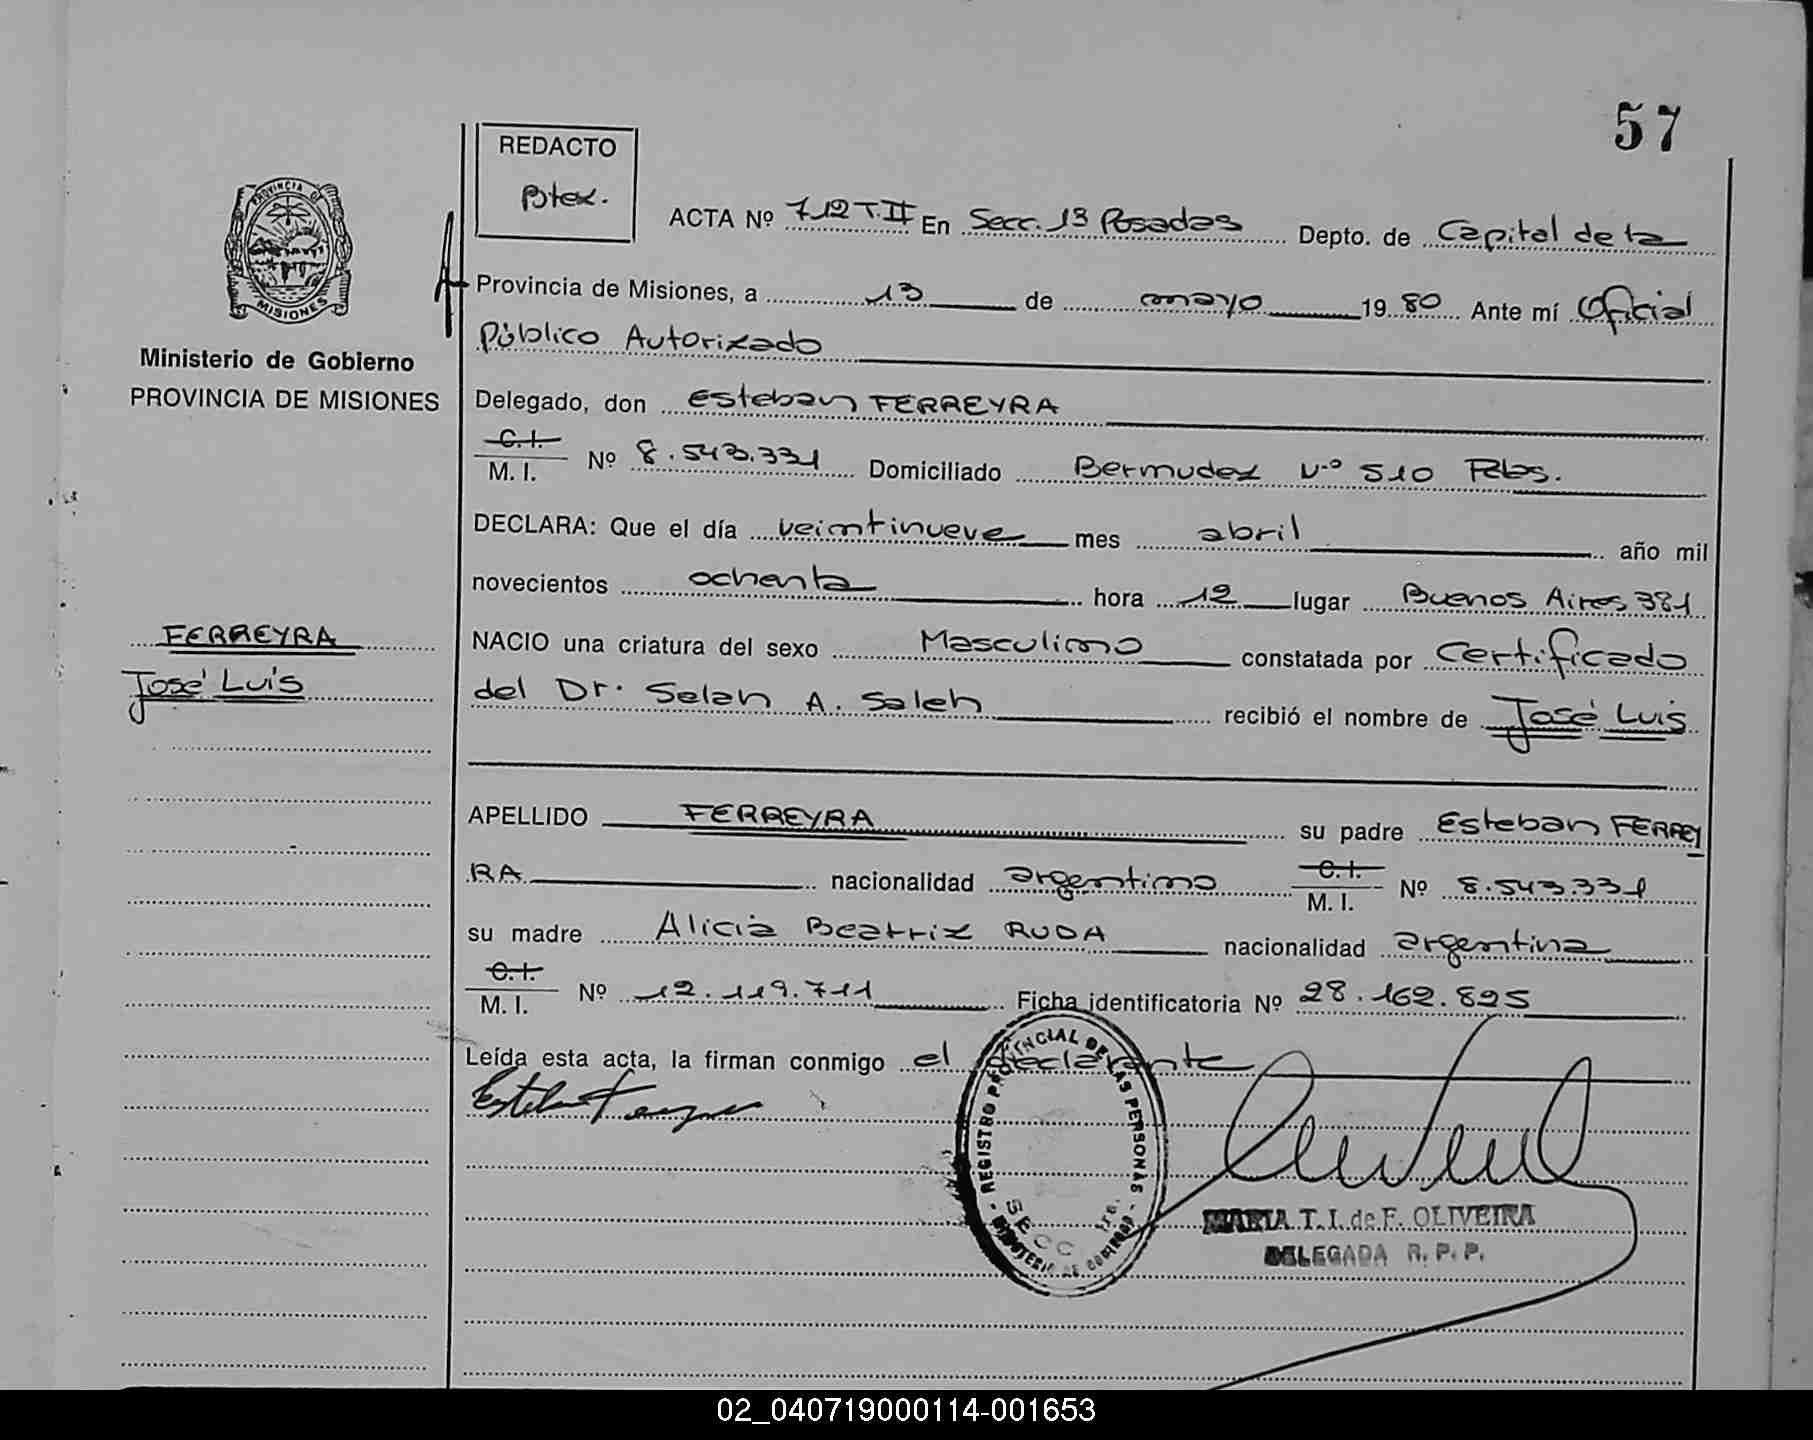 57
REDACTO
Btex.
ACTA Nº 712 T.II En Secc. 1ª Posadas Depto. de Capital de la
Provincia de Misiones, a 13 de mayo 1980 Ante mí Oficial
Público Autorizado
PROVINCIA DE
MISIONES
Ministerio de Gobierno
PROVINCIA DE MISIONES
Delegado, don Esteban FERREYRA
C.I.
M. I. Nº 8.543.331 Domiciliado Bermudez Nº 510 Pdas.
DECLARA: Que el día veintinueve mes abril año mil
novecientos ochenta hora 12 lugar Buenos Aires 381
FERREYRA
José Luis
NACIO una criatura del sexo Masculino constatada por Certificado
del Dr. Selah A. Saleh recibió el nombre de José Luis
APELLIDO FERREYRA su padre Esteban FERREY
RA nacionalidad argentino C.I.
M. I. Nº 8.543.331
su madre Alicia Beatriz RUDA nacionalidad argentina
C.I.
M. I. Nº 12.119.711 Ficha identificatoria Nº 28.162.825
Leída esta acta, la firman conmigo el declarante
REGISTRO PROVINCIAL DE LAS PERSONAS
SECC 1ra.
MINISTERIO DE GOBIERNO
MARIA T. I. de F. OLIVEIRA
DELEGADA R. P. P.
02_040719000114-001653